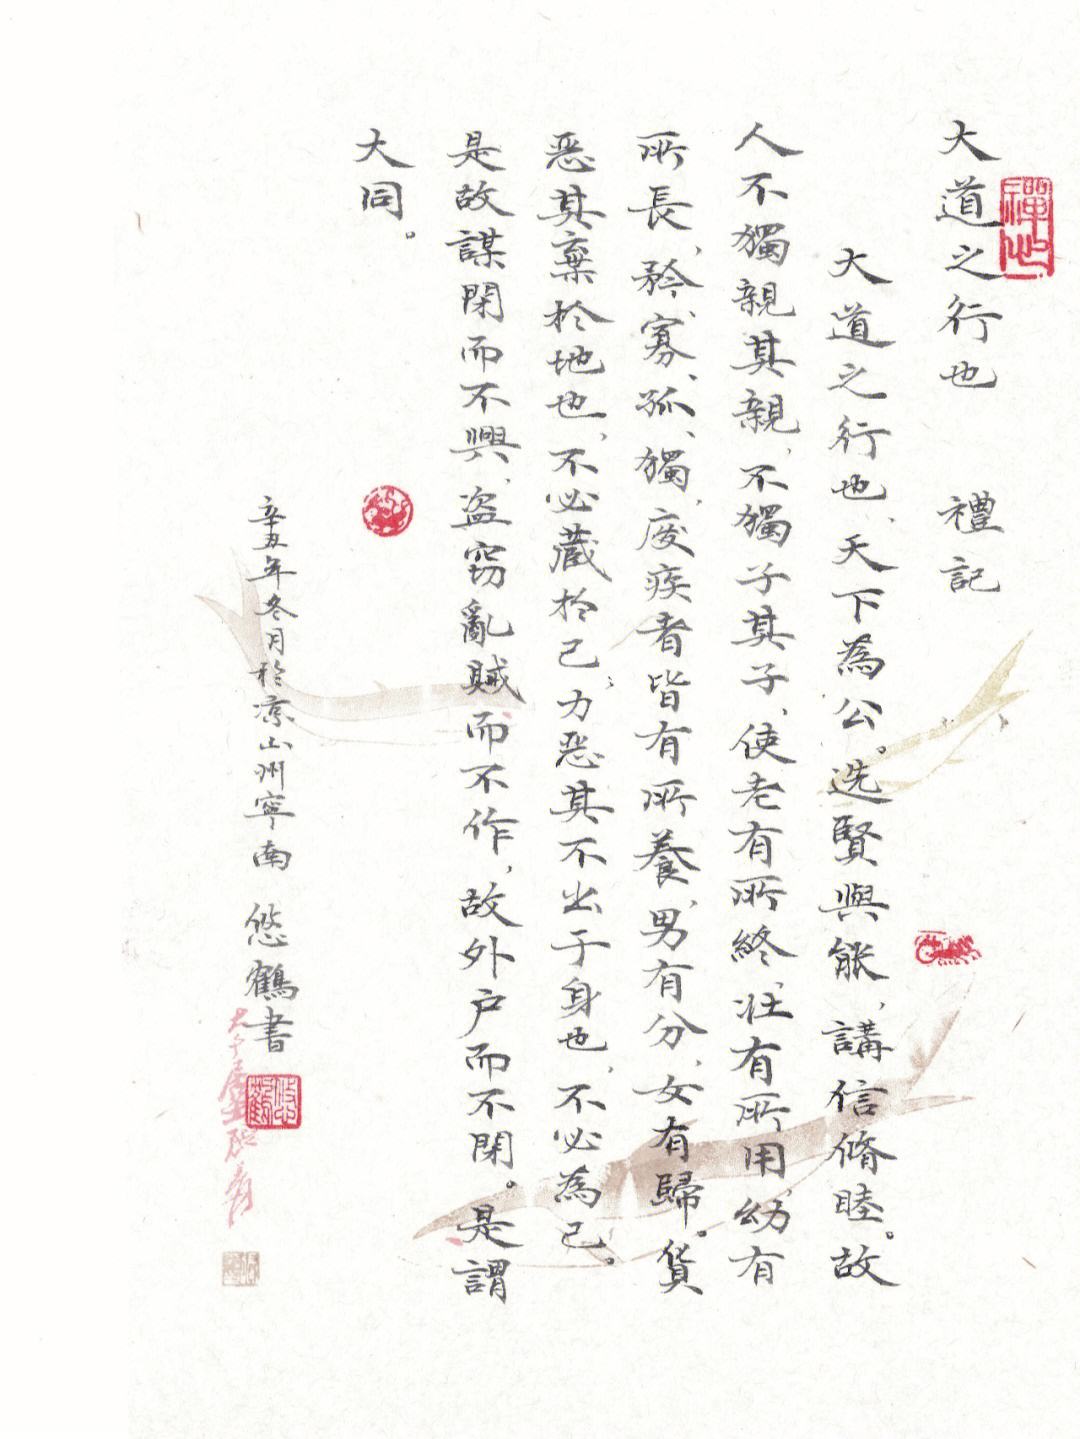 大道之行也　禮記
大道之行也、天下為公。选賢與能，講信脩睦。故
人不獨親其親，不獨子其子，使老有所終、壮有所用、幼有
所長，矜、寡、孤、獨、廢疾者皆有所養，男有分、女有歸。貨
恶其棄於地也，不必藏於己，力恶其不出于身也，不必為己。
是故謀閉而不興，盗窃亂賊而不作，故外户而不閉。是謂
大同。
辛丑年冬月於凉山州寧南　悠鶴書
悠鶴